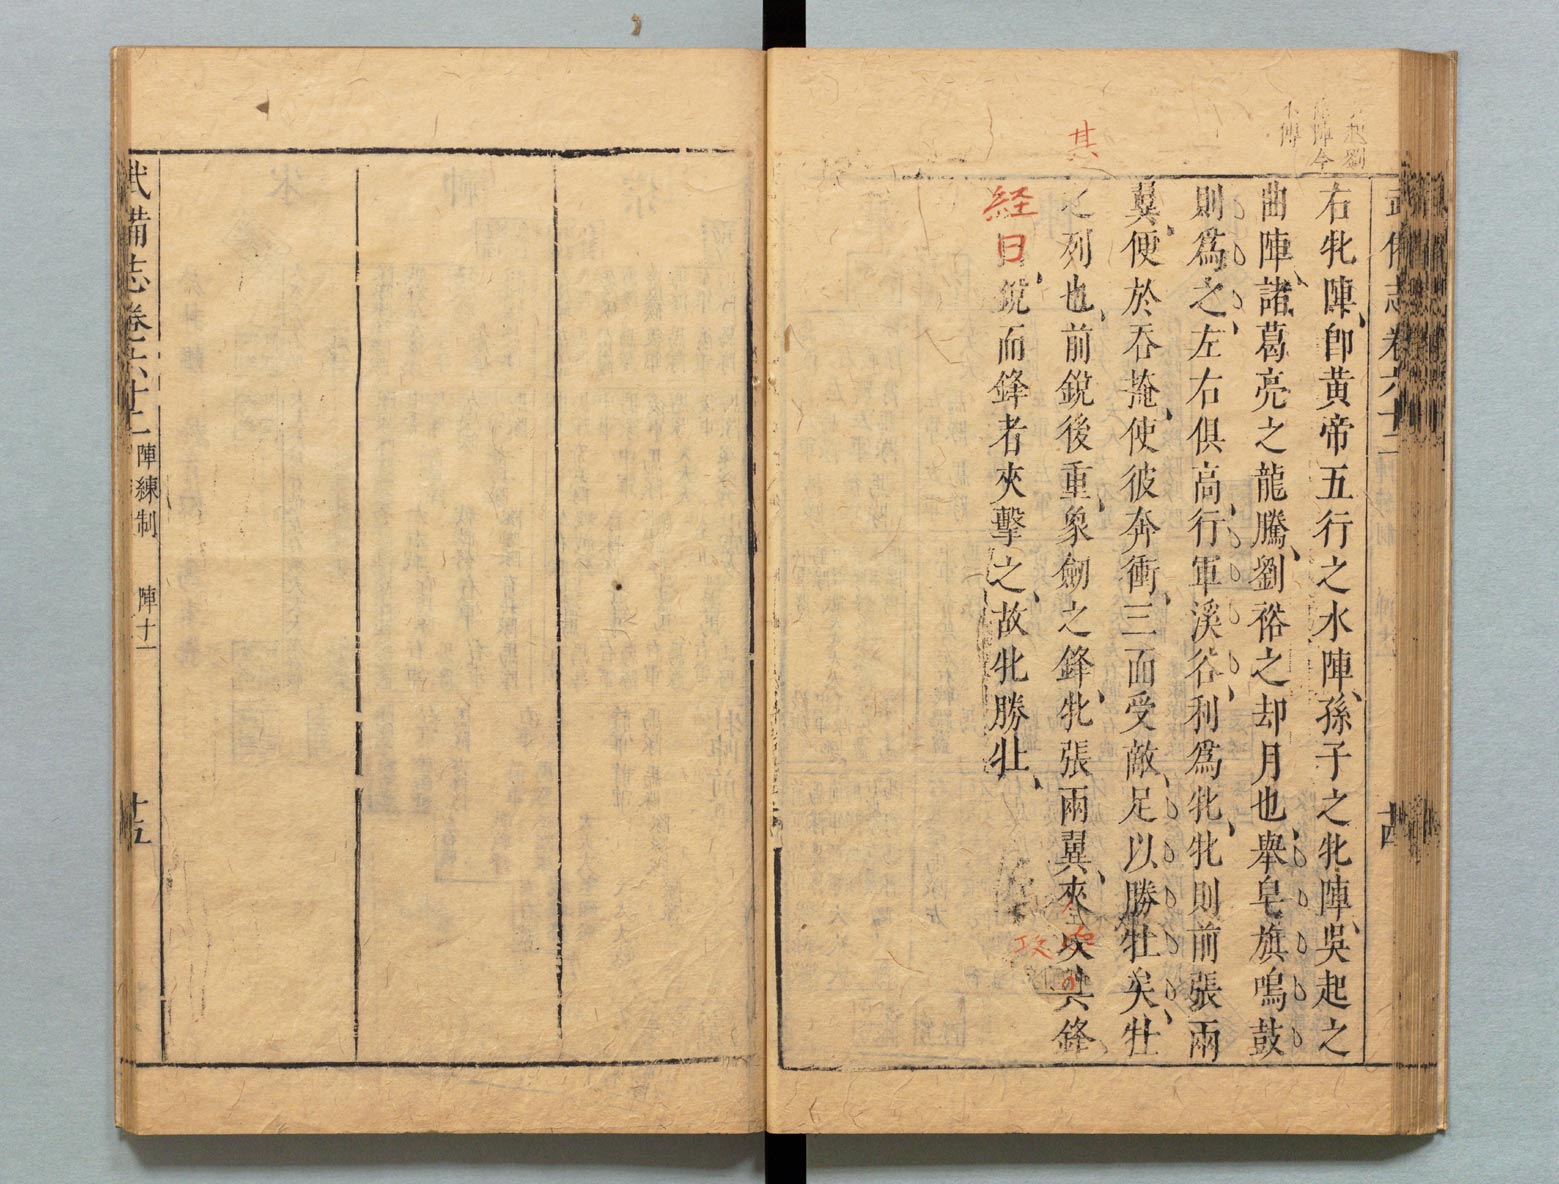 武備志卷六十二
古
起劉
陣今
傳
右牝陣卽黃帝五行之水陣孫子之牝陣吳起之
曲陣諸葛亮之龍騰劉裕之却月也舉皂旗鳴鼓
則爲之左右俱高行軍溪谷利爲牝牝則前張兩
翼便於吞掩使彼奔衝三面受敵足以勝牡矣牡
其
之列也前銳後重象劒之鋒牝張兩翼夾攻其鋒
攻
経曰銳而鋒者夾擊之故牝勝牡
武備志卷六十二 陣練制 陣十一 十五